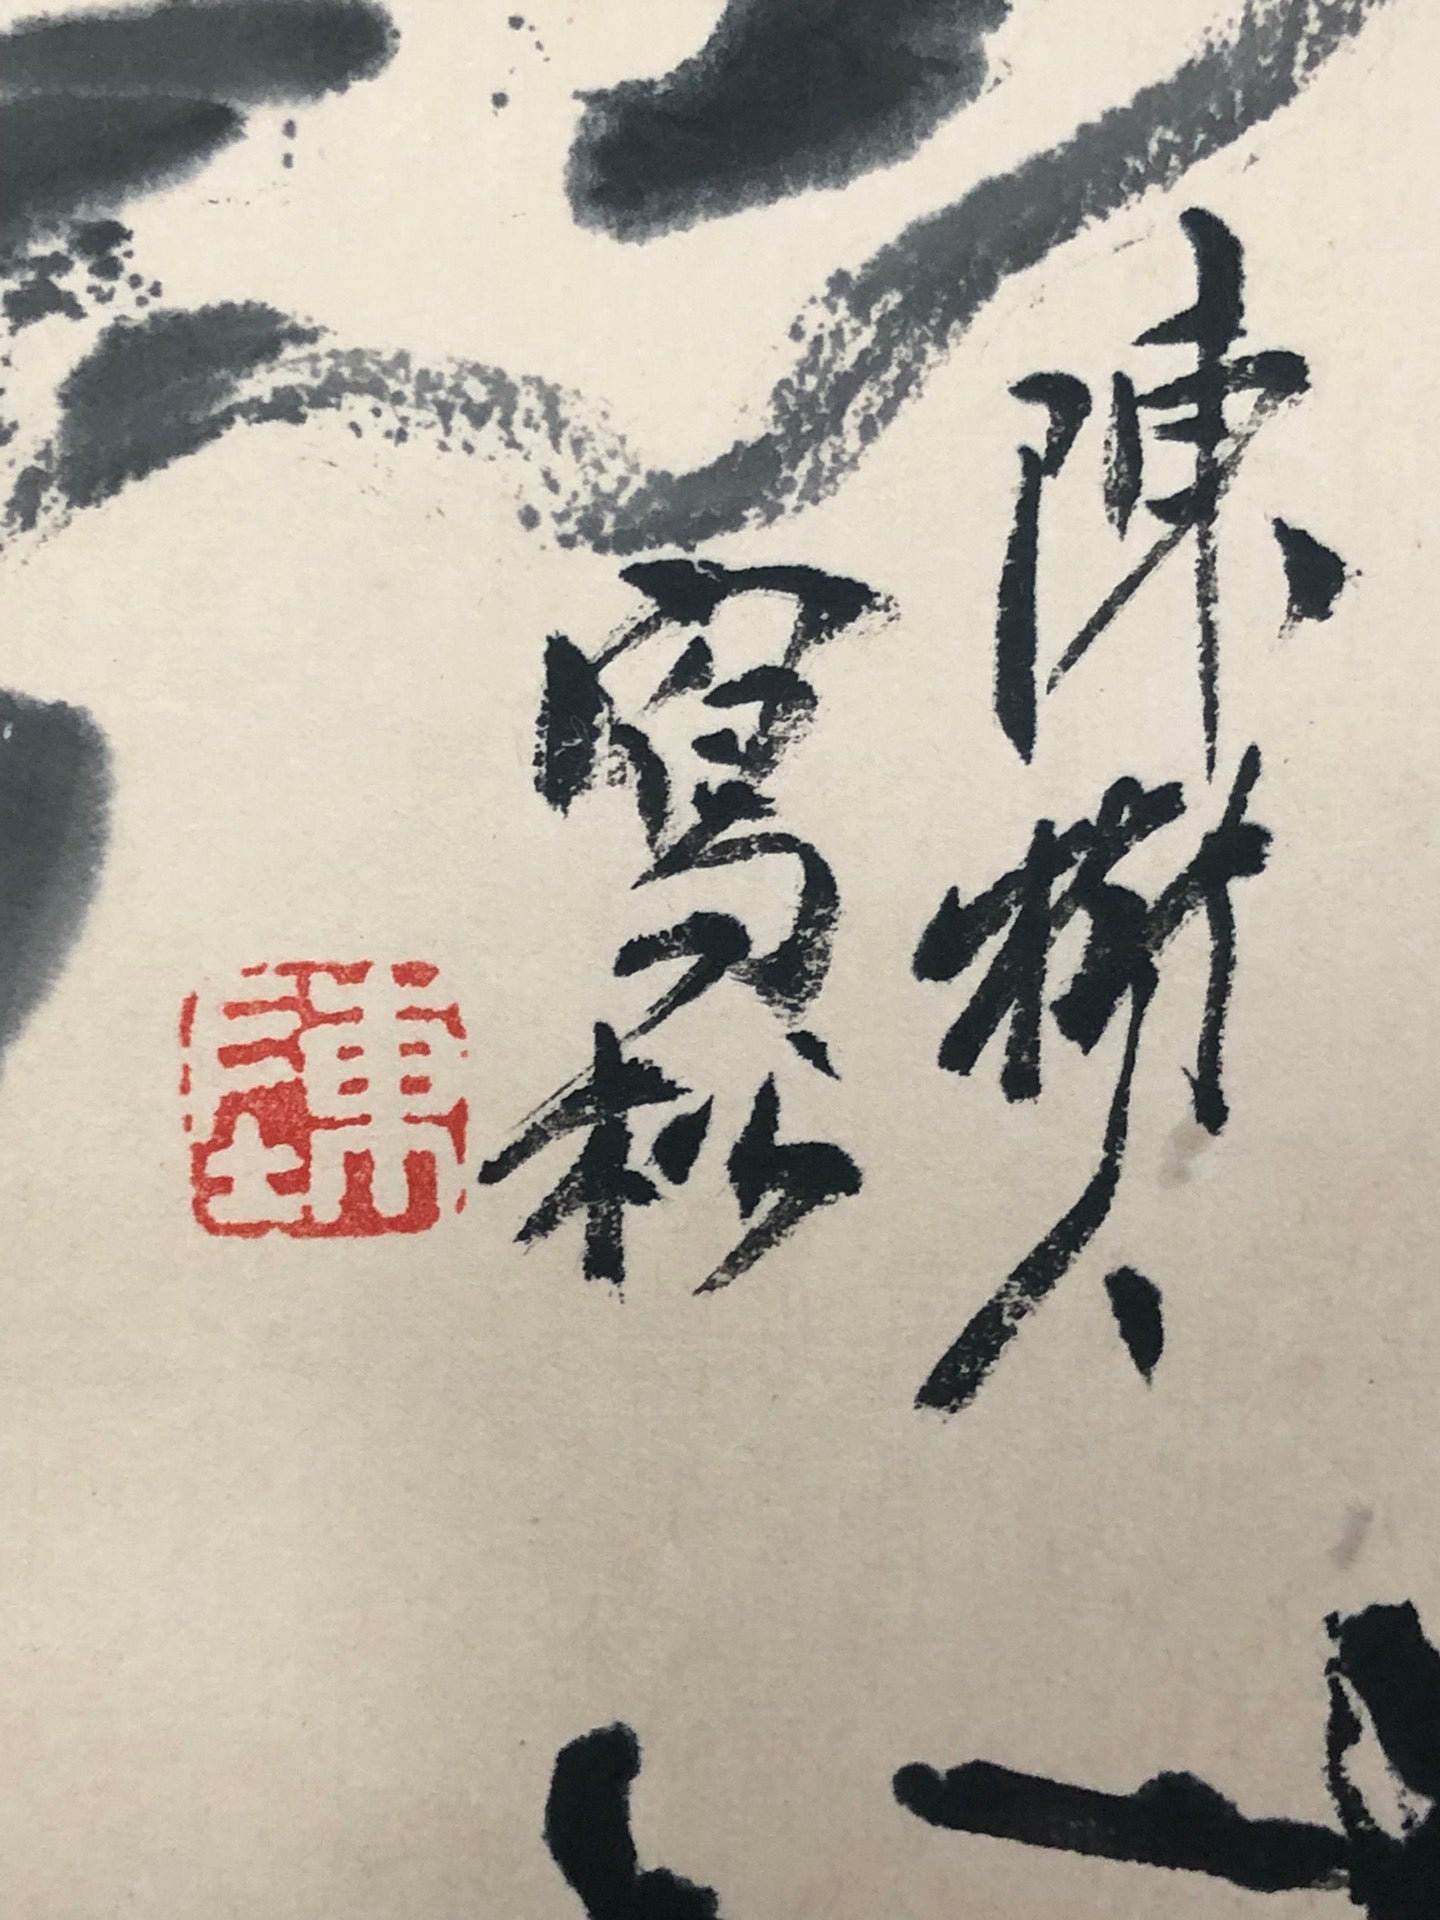 陳樹人
寫松
陳